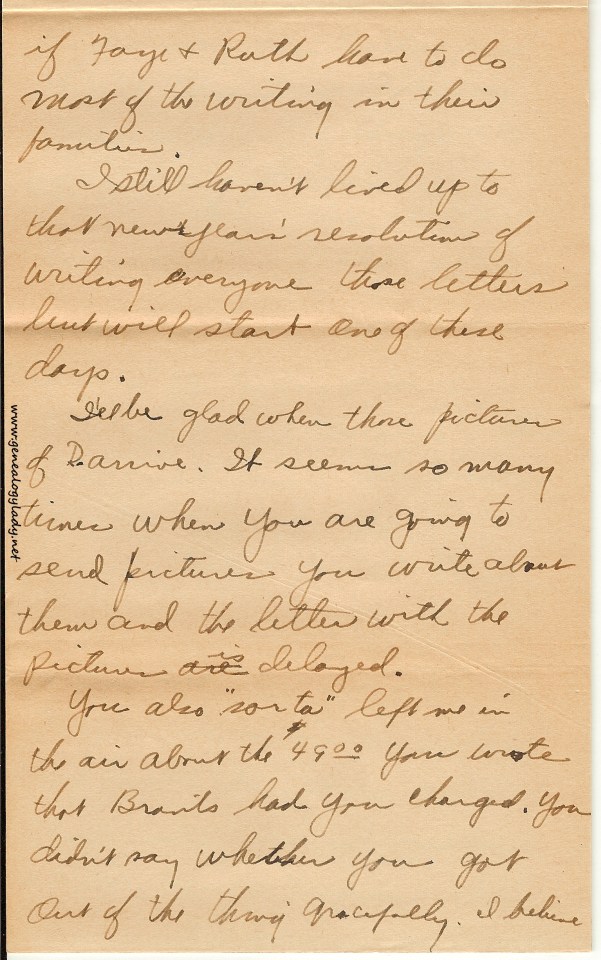 if Faye & Ruth have to do
most of the writing in their
families.
I still haven't lived up to
that new year's resolution of
writing everyone those letters
but will start one of these
days.
I'll be glad when those pictures
of D. arrive. It seems so many
times when you are going to
send pictures you write about
them and the letter with the
pictures are is delayed.
You also "sorta" left me in
the air about the $49.00 you wrote
that had you charged. You
didn't say whether you got
out of the thing gracefully. I believe
www.genealogylady.net